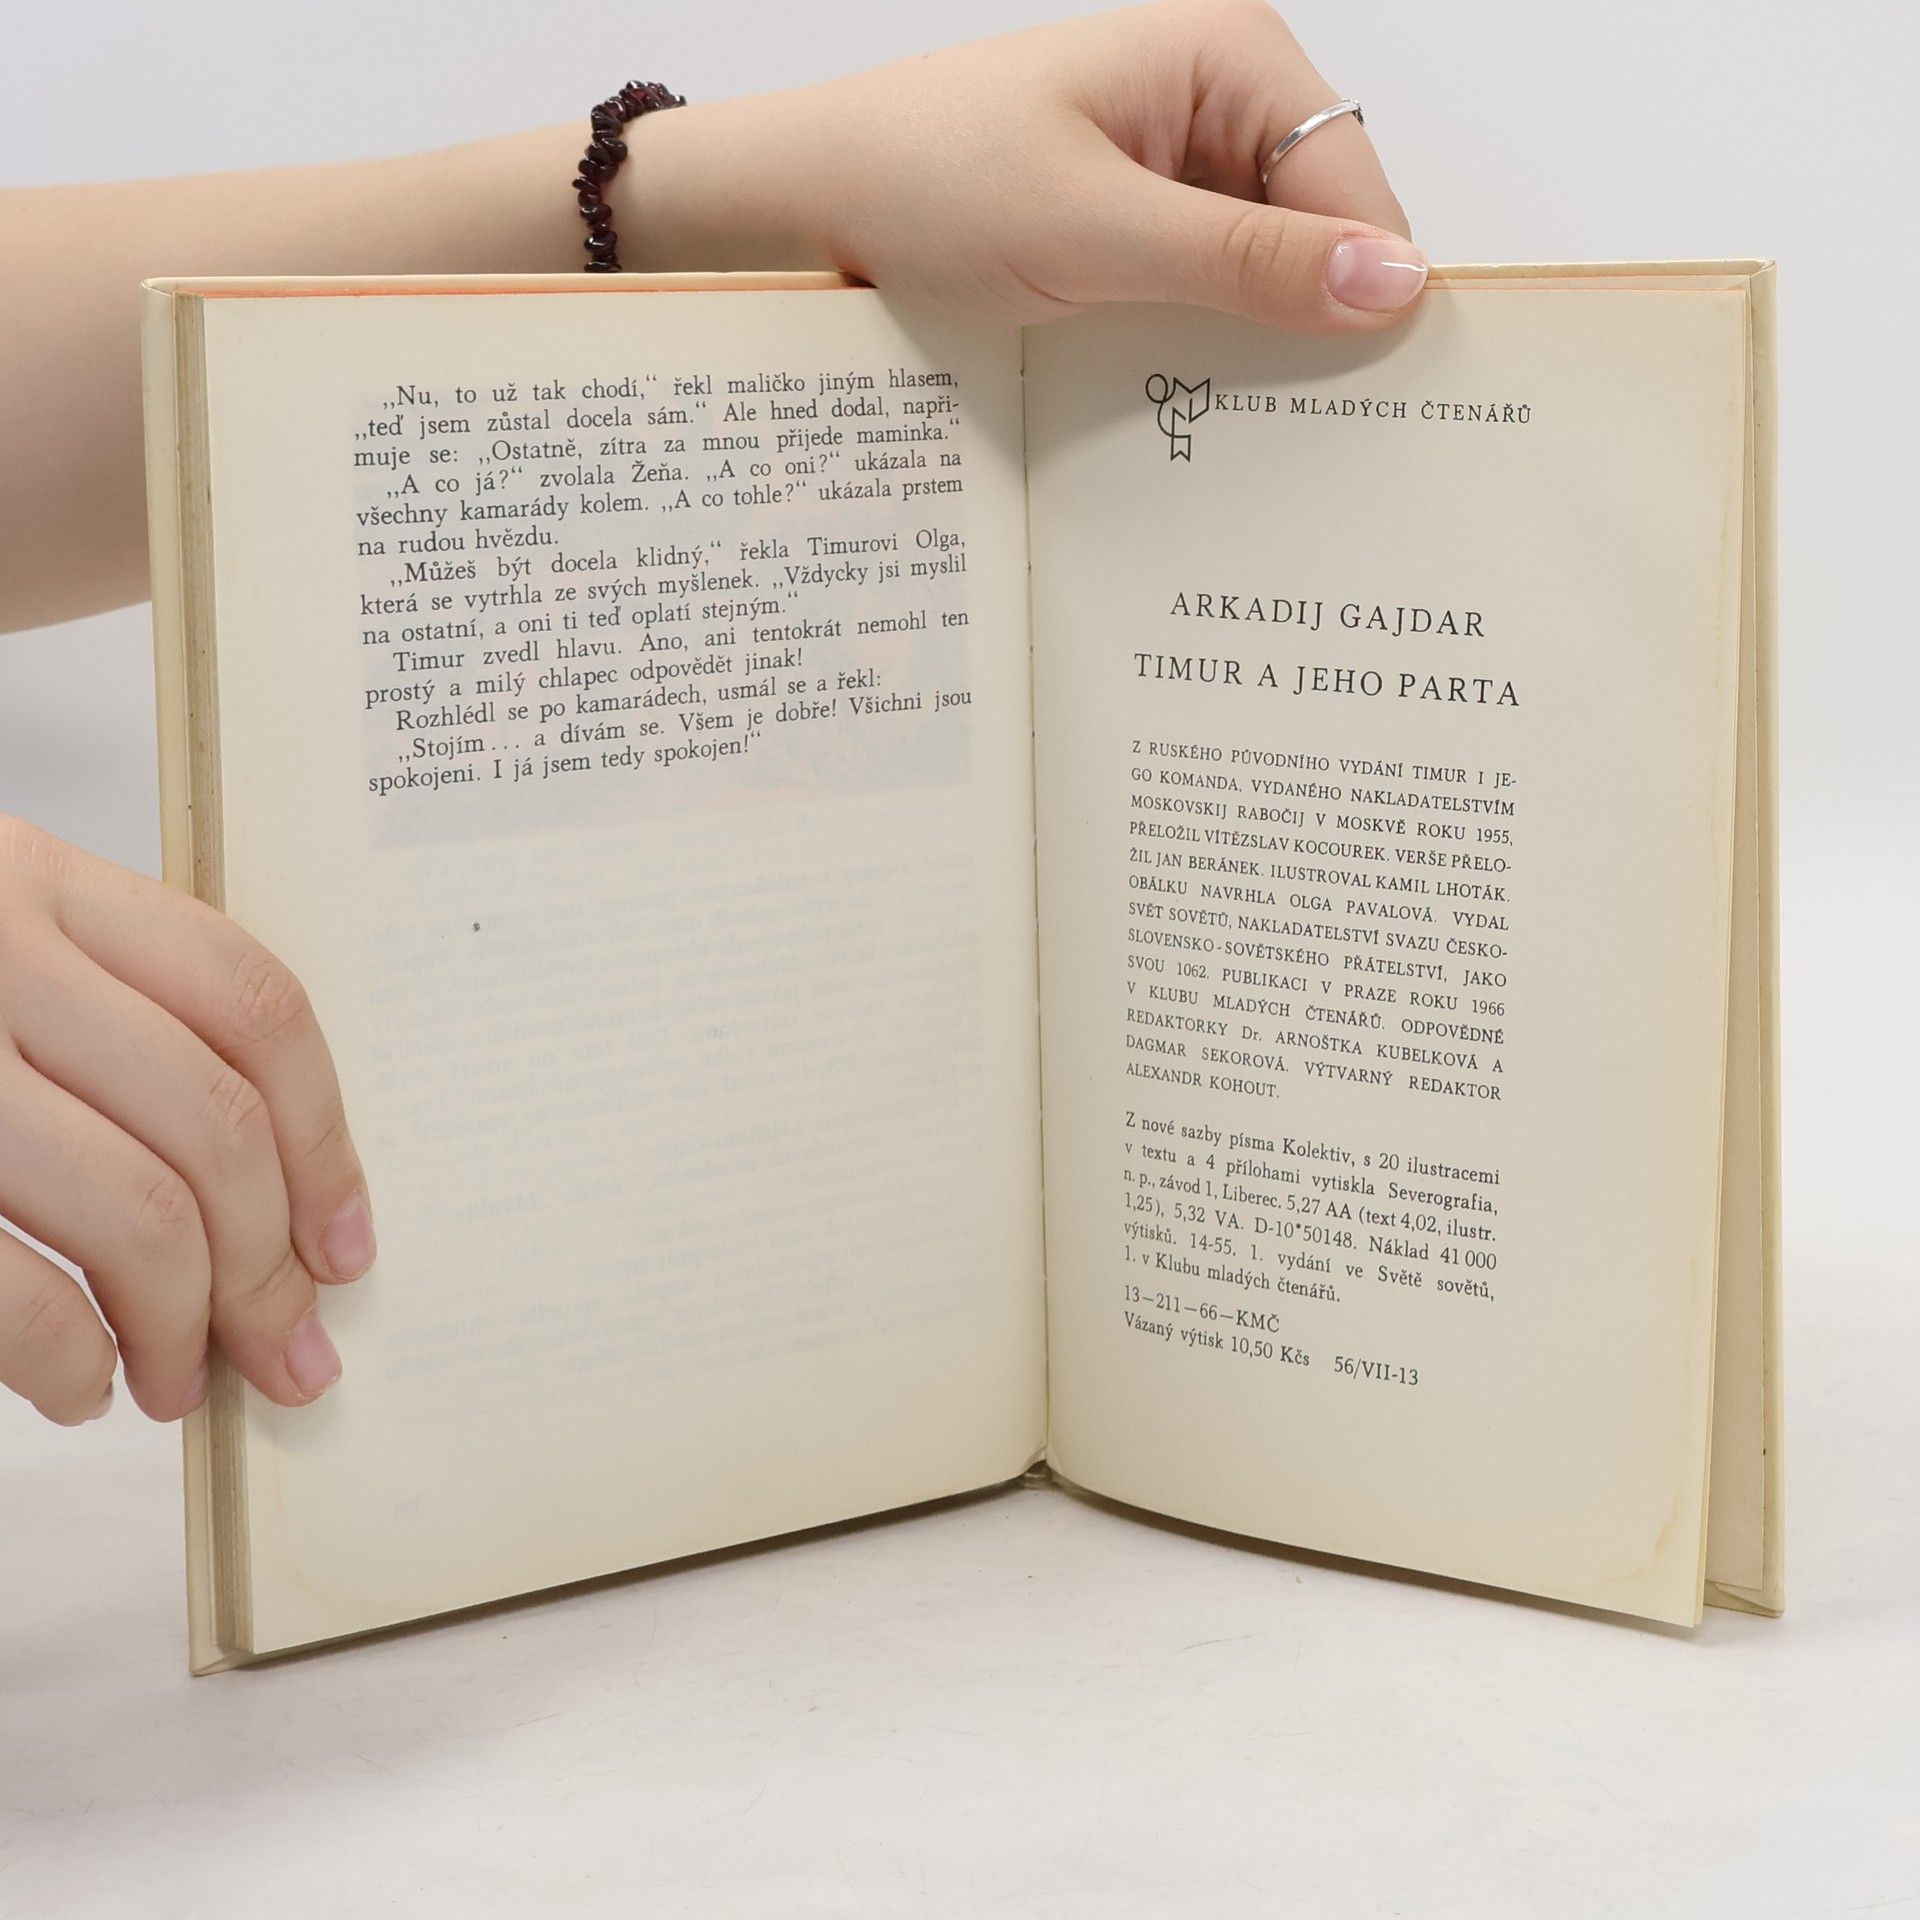 „Nu, to už tak chodí,“ řekl maličko jiným hlasem,
„teď jsem zůstal docela sám.“ Ale hned dodal, napři-
muje se: „Ostatně, zítra za mnou přijede maminka.“
„A co já?“ zvolala Žeňa. „A co oni?“ ukázala na
všechny kamarády kolem. „A co tohle?“ ukázala prstem
na rudou hvězdu.
„Můžeš být docela klidný,“ řekla Timurovi Olga,
která se vytrhla ze svých myšlenek. „Vždycky jsi myslil
na ostatní, a oni ti teď oplatí stejným.“
Timur zvedl hlavu. Ano, ani tentokrát nemohl ten
prostý a milý chlapec odpovědět jinak!
Rozhlédl se po kamarádech, usmál se a řekl:
„Stojím... a dívám se. Všem je dobře! Všichni jsou
spokojeni. I já jsem tedy spokojen!“
KLUB MLADÝCH ČTENÁŘŮ
ARKADIJ GAJDAR
TIMUR A JEHO PARTA
Z RUSKÉHO PŮVODNÍHO VYDÁNÍ TIMUR I JE-
GO KOMANDA, VYDANÉHO NAKLADATELSTVÍM
MOSKOVSKIJ RABOČIJ V MOSKVĚ ROKU 1955,
PŘELOŽIL VÍTĚZSLAV KOCOUREK. VERŠE PŘELO-
ŽIL JAN BERÁNEK. ILUSTROVAL KAMIL LHOTÁK.
OBÁLKU NAVRHLA OLGA PAVALOVÁ. VYDAL
SVĚT SOVĚTŮ, NAKLADATELSTVÍ SVAZU ČESKO-
SLOVENSKO-SOVĚTSKÉHO PŘÁTELSTVÍ, JAKO
SVOU 1062. PUBLIKACI V PRAZE ROKU 1966
V KLUBU MLADÝCH ČTENÁŘŮ. ODPOVĚDNÉ
REDAKTORKY Dr. ARNOŠTKA KUBELKOVÁ A
DAGMAR SEKOROVÁ. VÝTVARNÝ REDAKTOR
ALEXANDR KOHOUT.
Z nové sazby písma Kolektiv, s 20 ilustracemi
v textu a 4 přílohami vytiskla Severografia,
n. p., závod 1, Liberec. 5,27 AA (text 4,02, ilustr.
1,25), 5,32 VA. D-10*50148. Náklad 41 000
výtisků. 14-55. 1. vydání ve Světě sovětů,
1. v Klubu mladých čtenářů.
13—211—66—KMČ
Vázaný výtisk 10,50 Kčs 56/VII-13